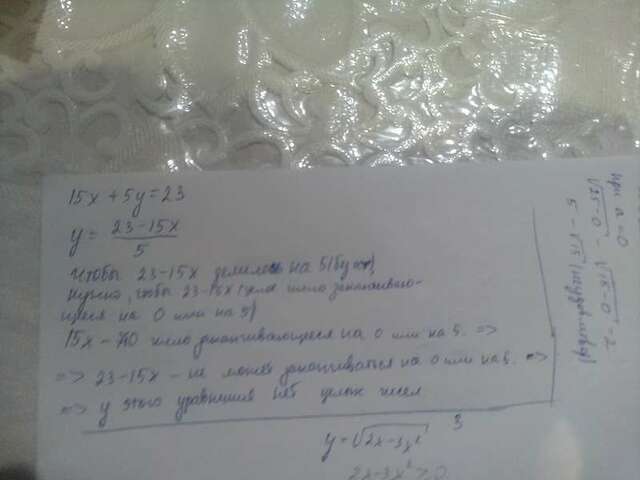 15x + 5y = 23
y = (23 - 15x)/5
чтобы 23-15x делилось на 5
нужно, чтобы 23-15x число заканчиваю-
щееся на 0 или на 5)
15x - это число заканчивающееся на 0 или на 5. =>
=> 23-15x - не может заканчиваться на 0 или на 5. =>
=> у этого уравнения нет целых чисел
y = √2x-3x² 3
2x-3x² ≥ 0
при a=0
√25-0 - √15-0 = 2
5 - √15